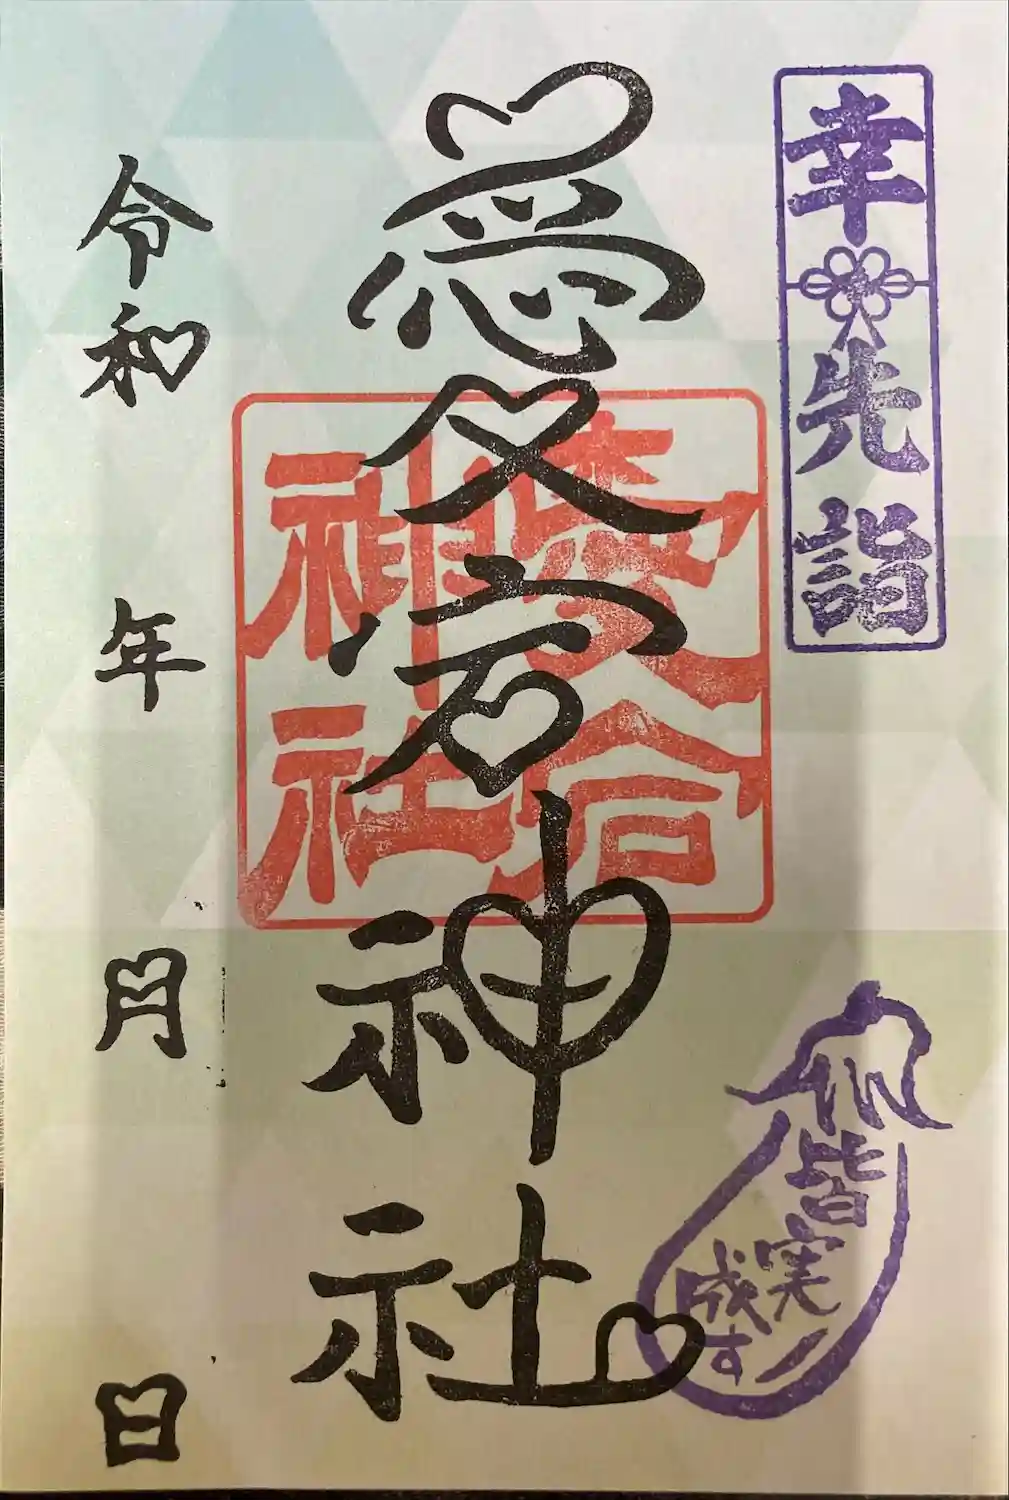 幸先詣
愛宕神社
愛宕
神社
皆
実
成す
令和 年 月 日